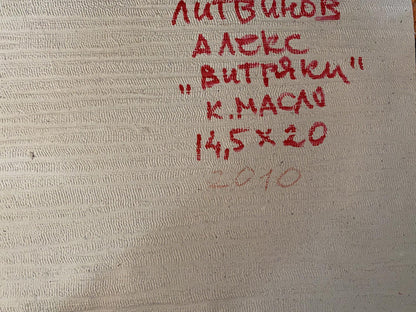 ЛИТВИНОВ
АЛЕКС
"ВИТРЯКИ"
К. МАСЛО
14,5 х 20
2010